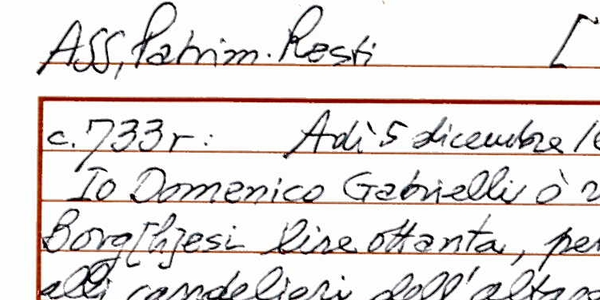 ASS, Patrim. Resti [
c. 733r: Adì 5 dicembre 16
Io Domenico Gabrielli ò
Borg[h]esi lire ottanta, per
alli candelieri dell'altare